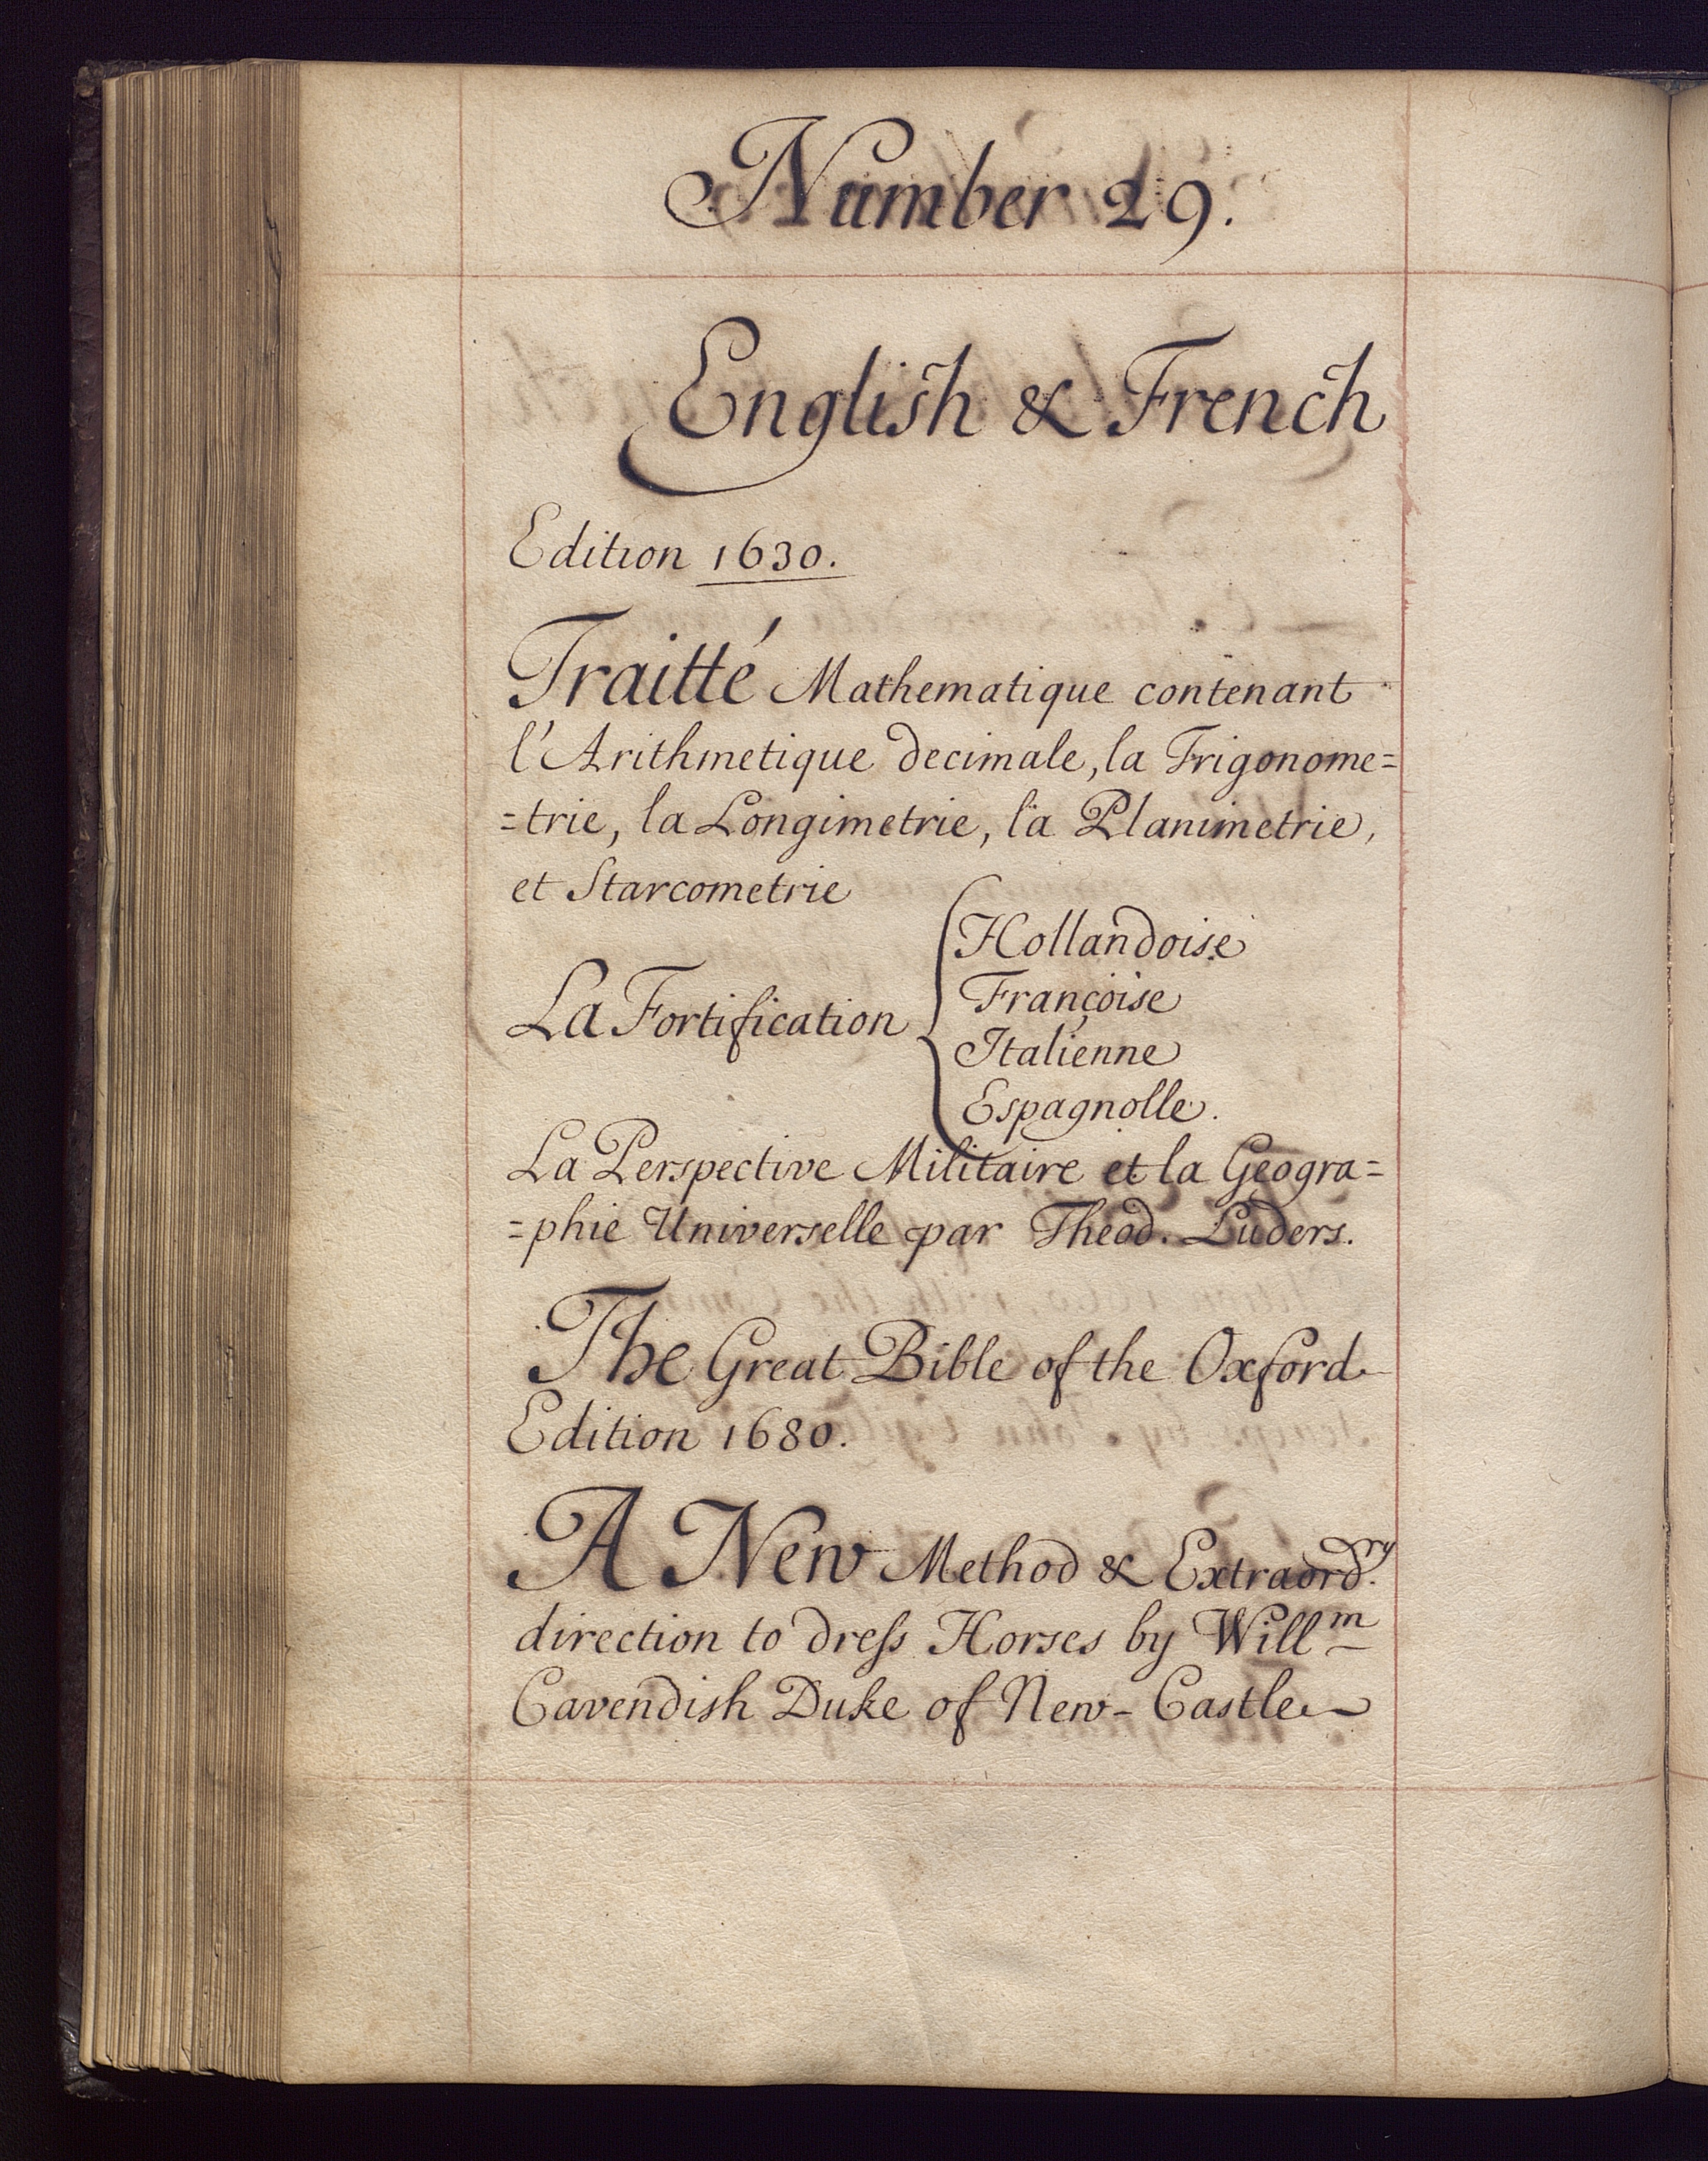 Number 29.
English & French
Edition 1630.
Traitté Mathematique contenant
l'Arithmetique decimale, la Trigonome=
=trie, la Longimetrie, la Planimetrie,
et Starcometrie
La Fortification
Hollandoise
Françoise
Italienne
Espagnolle.
La Perspective Militaire et la Geogra=
=phie Universelle par Theod. Luders.
The Great Bible of the Oxford
Edition 1680.
A New Method & Extraord.ry
direction to dreſs Horses by Willm
Cavendish Duke of New-Castle